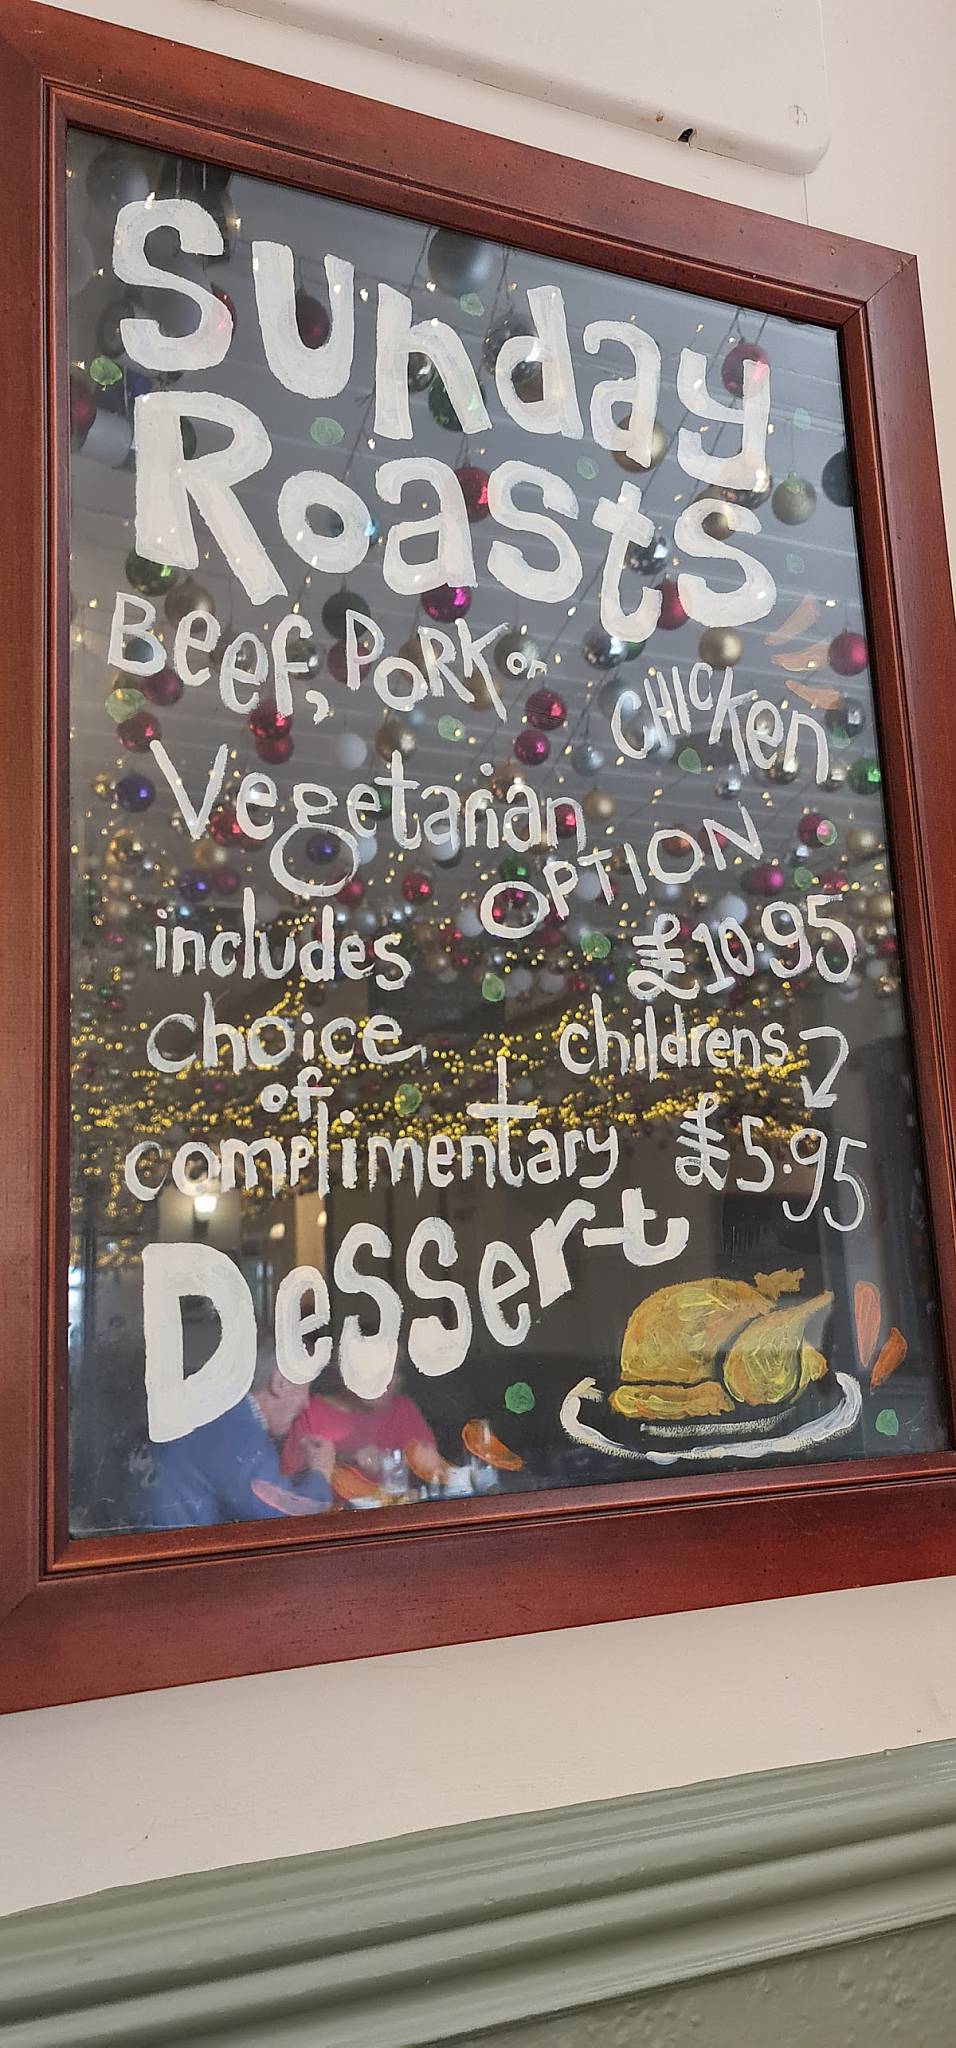 Sunday
Roasts
Beef, Pork or Chicken
Vegetarian
OPTION
includes £10.95
choice childrens
of
complimentary £5.95
Dessert